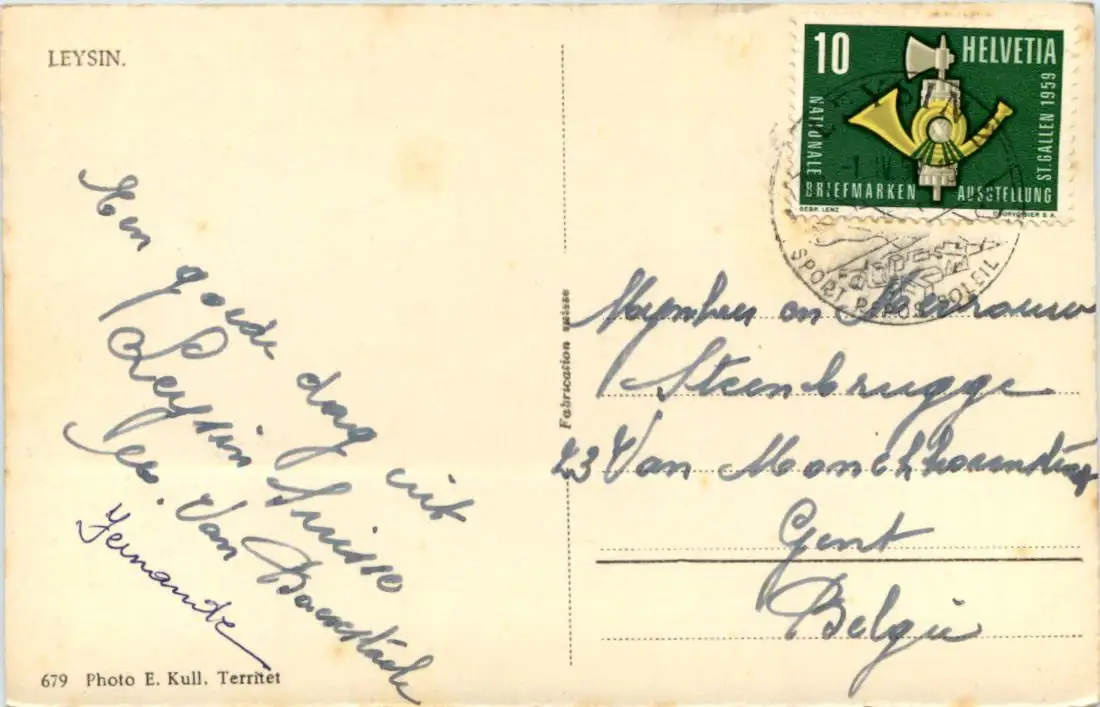 LEYSIN.
10 HELVETIA
NATIONALE
BRIEFMARKEN AUSSTELLUNG
ST. GALLEN 1959
GEBR. LENZ COURVOISIER S.A.
LEYSIN
SPORT REPOS SOLEIL
Een goede dag uit
Leysin Suisse
Van
Fernande
Fabrication suisse
Mynheer en Mevrouw
Steenbrugge
23 Van
Gent
Belgie
679 Photo E. Kull, Territet